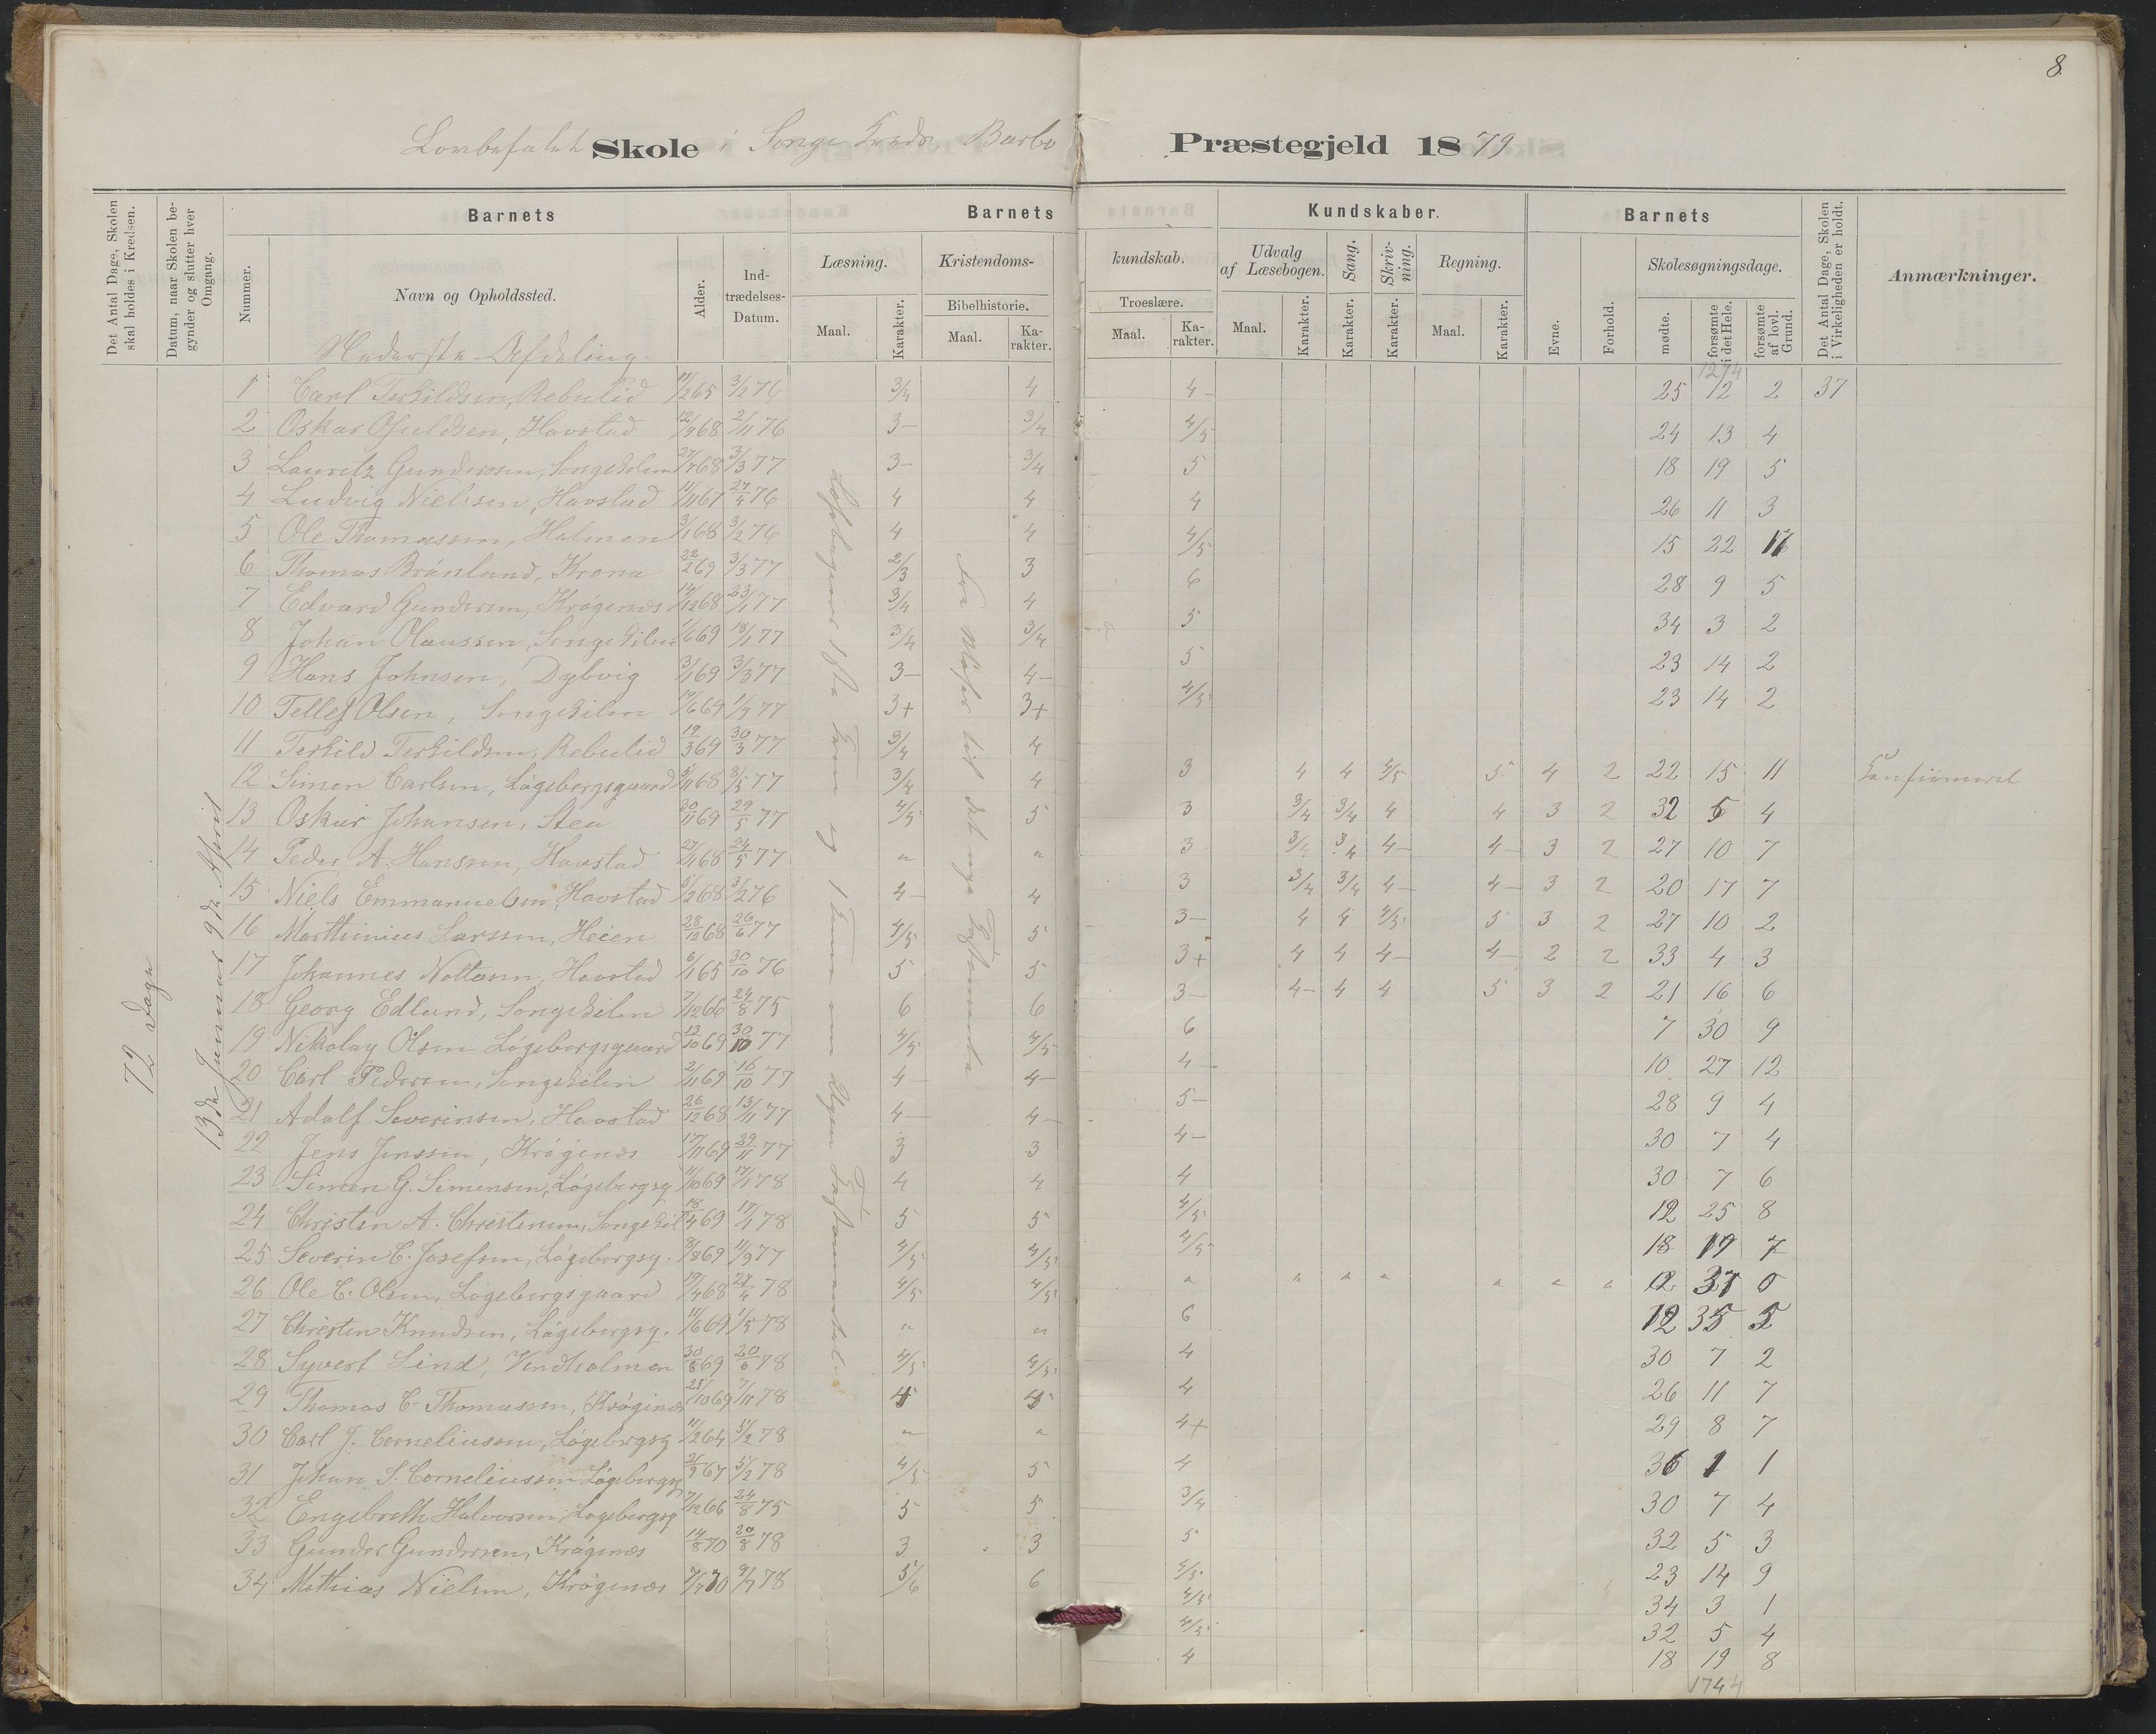 8
Lovbefalet Skole i Songe Kreds Barbo Præstegjeld 1879
Det Antal Dage, Skolen skal holdes i Kredsen.
Datum, naar Skolen begynder og slutter hver Omgang.
Barnets
Barnets
Kundskaber.
Barnets
Det Antal Dage, Skolen i Virkeligheden er holdt.
Anmærkninger.
Nummer.
Navn og Opholdssted.
Alder.
Indtrædelses-Datum.
Læsning.
Kristendoms-
kundskab.
Udvalg af Læsebogen.
Sang.
Skrivning.
Regning.
Evne.
Forhold.
Skolesøgningsdage.
Bibelhistorie.
Troeslære.
Maal. Karakter. Maal. Karakter. Maal. Karakter. Maal. Karakter. Karakter. Karakter. Maal. Karakter.
mødte. forsømte i det Hele. forsømte af lovl. Grund.
Nederste Afdeling
72 Dage
13de Januar 9de April
1274
1 Carl Terkildsen, Rebulid 11/2 65 3/2 76 3/4 4
2 Oskar Osuldsen, Havstad 12/9 68 2/11 76 3- 3/4
3 Lauritz Gundersen, Songekilen 27/7 68 3/3 77 3- 3/4
4 Ludvig Nielssen, Havstad 11/11 67 27/4 76 4 4
5 Ole Thomassen, Holmen 3/1 68 3/2 76 4 4
6 Thomas Brånland, Krona 22/2 69 3/3 77 2/3 3
7 Edvard Gundersen, Krøgenæs 14/12 68 23/1 77 3/4 4
8 Johan Olaussen, Songekilen 1/6 69 18/1 77 3/4 3/4
9 Hans Johnsen, Dybvig 3/1 69 3/3 77 3- 4-
10 Tellef Olsen, Songekilen 17/6 69 1/3 77 3+ 3+
11 Terkild Terkildsen, Rebulid 19/3 69 30/3 77 3/4 4
12 Simen Carlsen, Løgebergsgaard 5/11 68 8/5 77 3/4 4
13 Oskar Johansen, Stea 20/11 69 29/5 77 4/5 5
14 Peder A. Hanssen, Havstad 27/1 68 24/5 77 " "
15 Niels Emmanuelsen, Havstad 5/2 68 3/2 76 4- 4
16 Marthinius Larssen, Heien 28/12 68 26/6 77 4/5 5
17 Johannes Nottosen, Havstad 6/1 65 30/10 76 5 5
18 Georg Edlund, Songekilen 7/12 66 24/8 75 6 6
19 Nikolay Olsen Løgebergsgaard 13/10 69 30/10 77 4/5 4/5
20 Carl Pedersen, Songekilen 2/11 69 16/10 77 4- 4-
21 Adolf Severinsen, Havstad 26/12 68 13/11 77 4- 4-
22 Jens Jenssen, Krøgenæs 17/11 69 29/11 77 3 3
23 Simen G. Simensen, Løgebergsg 11/10 69 17/1 78 4 4
24 Christen A. Christensen, Songekil 18/4 69 17/1 78 5 5
25 Severin C. Josefsen, Løgebergsg. 8/8 69 11/9 77 4/5 4/5
26 Ole C. Olsen, Løgebergsgaard 19/4 68 24/4 78 4/5 4/5
27 Christen Knudsen, Løgebergsg. 11/6 69 1/5 78 " "
28 Syvert Lind, Vindholmen 30/8 69 20/6 78 4/5 4/5
29 Thomas C. Thomassen, Krøgenæs 21/10 69 7/11 78
30 Carl J. Corneliussen, Løgebergsg 11/2 64 5/2 78 " "
31 Johan S. Corneliussen Løgebergsg 67 5/2 78 4/5 5
32 Engebreth Halvorsen, Løgebergsg 7/12 66 24/8 75 5 5
33 Gunder Gundersen, Krøgenæs 14/8 70 20/8 78 3 3
34 Mathias Nielsen, Krøgenæs 7/7 70 9/7 78 5/6 6
4- 25 12 2 37
4/5 24 13 4
5 18 19 5
4 26 11 3
4/5 15 22
6 28 9 5
5 34 3 2
5 23 14 2
4/5 23 14 2
3 4 4 4/5 5 4 2 22 15 11 Konfirmeret
3 3/4 3/4 4 4 3 2 32 5 4
3 3/4 3/4 4- 4- 3 2 27 10 7
3 3/4 3/4 4- 4- 3 2 20 17 7
3- 4 4 4/5 5 3 2 27 10 2
3+ 4 4 4- 4- 2 2 33 4 3
3- 4- 4 4 5 3 2 21 16 6
6 7 30 9
4- 10 27 12
5- 28 9 4
4- 30 7 4
4 30 7 6
4/5 12 25 8
4/5 18 19 7
" " " " " " " 37 0
6 12 35 5
4 30 7 2
4 26 11 7
4+ 29 8 7
4 36 1 1
3/4 30 7 4
5 32 5 3
4/5 23 14 9
4/5 34 3 1
4/5 32 5 4
4 18 19 8
1744